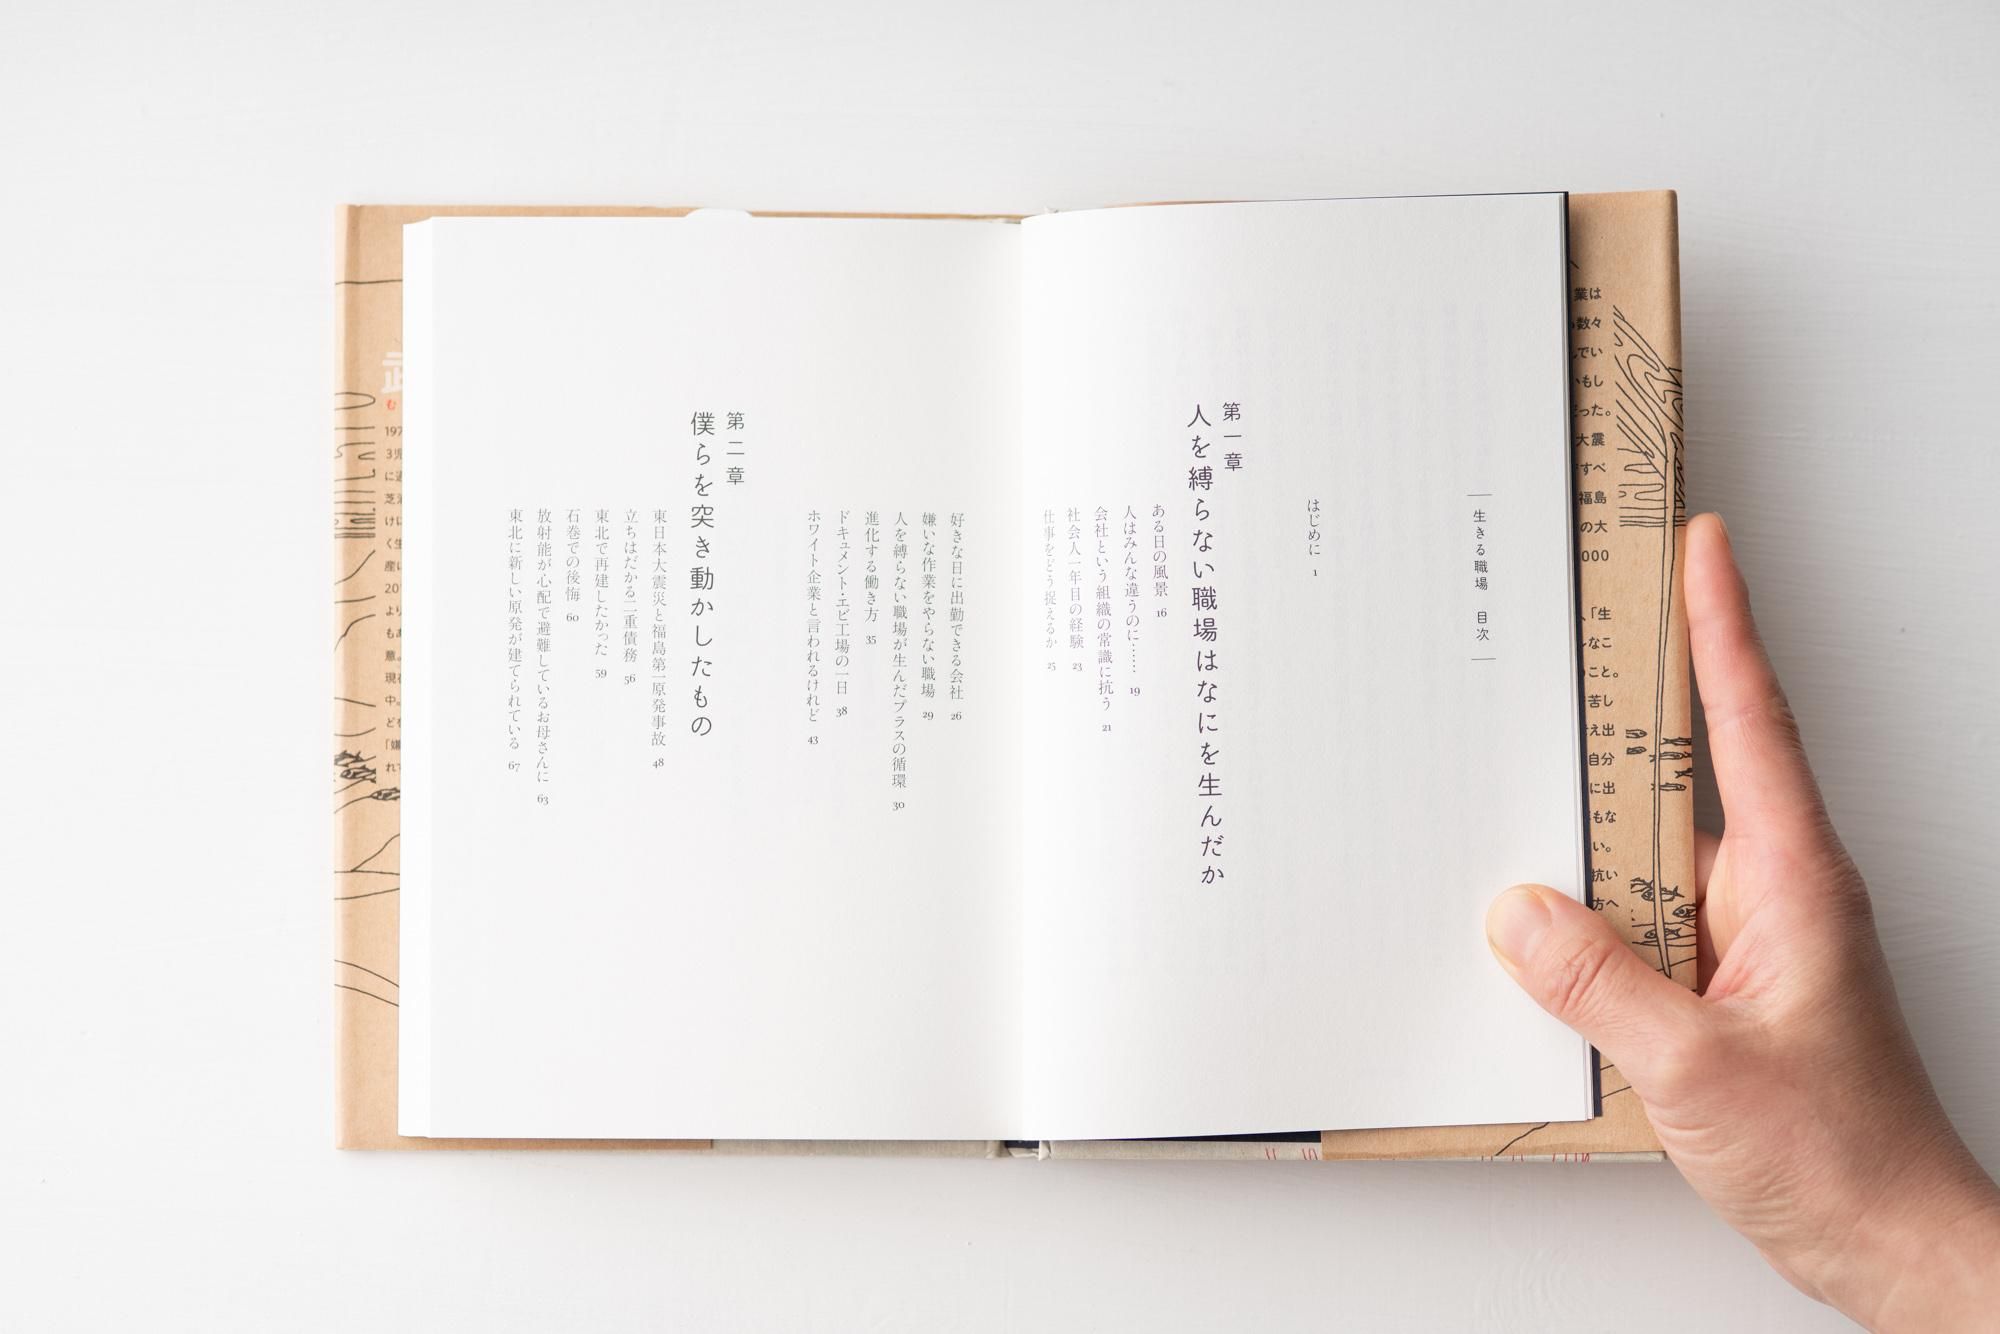 業は
数々
でい
もし
った。
大震
すべ
福島
の大
000
「生
なこ
こと。
苦し
え出
自分
に出
もな
い。
抗い
方へ
生きる職場 目次
はじめに 1
第一章
人を縛らない職場はなにを生んだか
ある日の風景 16
人はみんな違うのに…… 19
会社という組織の常識に抗う 21
社会人一年目の経験 23
仕事をどう捉えるか 25
好きな日に出勤できる会社 26
嫌いな作業をやらない職場 29
人を縛らない職場が生んだプラスの循環 30
進化する働き方 35
ドキュメント・エビ工場の一日 38
ホワイト企業と言われるけれど 43
第二章
僕らを突き動かしたもの
東日本大震災と福島第一原発事故 48
立ちはだかる二重債務 56
東北で再建したかった 59
石巻での後悔 60
放射能が心配で避難しているお母さんに 63
東北に新しい原発が建てられている 67
む
197
3児
に
芝
けに
く生
産
20
より
も
意。
現在
中。
どを
「嫌
れ